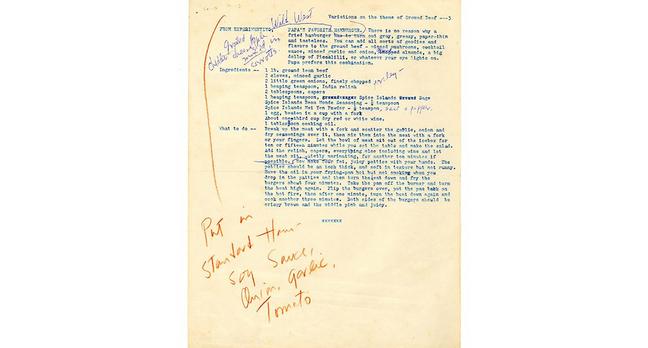 Variations on the theme of Ground Beef ---3
Wild West
FROM EXPERIMENTING, PAPA'S FAVORITE HAMBURGER. There is no reason why a
fried hamburger has to turn out gray, greasy, paper-thin
and tasteless. You can add all sorts of goodies and
flavors to the ground beef - minced mushrooms, cocktail
sauce, minced garlic and onion, chopped almonds, a big
dollop of Piccadilli, or whatever your eye lights on.
Papa prefers this combination.
grated
in
carrots
Ingredients -- 1 lb. ground lean beef
2 cloves, minced garlic
2 little green onions, finely chopped
parsley
1 heaping teaspoon, India relish
2 tablespoons, capers
1 heaping teaspoon, Spice Islands Sage
Spice Islands Beau Monde Seasoning - ½ teaspoon
Spice Islands Mei Yen Powder - ½ teaspoon, salt & pepper
1 egg, beaten in a cup with a fork
About one-third cup dry red or white wine.
1 tablespoon cooking oil.
What to do -- Break up the meat with a fork and scatter the garlic, onion and
dry seasonings over it, then mix them into the meat with a fork
or your fingers. Let the bowl of meat sit out of the icebox for
ten or fifteen minutes while you set the table and make the salad.
Add the relish, capers, everything else including wine and let
the meat sit, quietly marinating, for another ten minutes if
possible. Now make four fat, juicy patties with your hands. The
patties should be an inch thick, and soft in texture but not runny.
Have the oil in your frying-pan hot but not smoking when you
drop in the patties and then turn the heat down and fry the
burgers about four minutes. Take the pan off the burner and turn
the heat high again. Flip the burgers over, put the pan back on
the hot fire, then after one minute, turn the heat down again and
cook another three minutes. Both sides of the burgers should be
crispy brown and the middle pink and juicy.
Put in
Standard Ham-
Soy Sauce,
Onion, Garlic,
Tomato